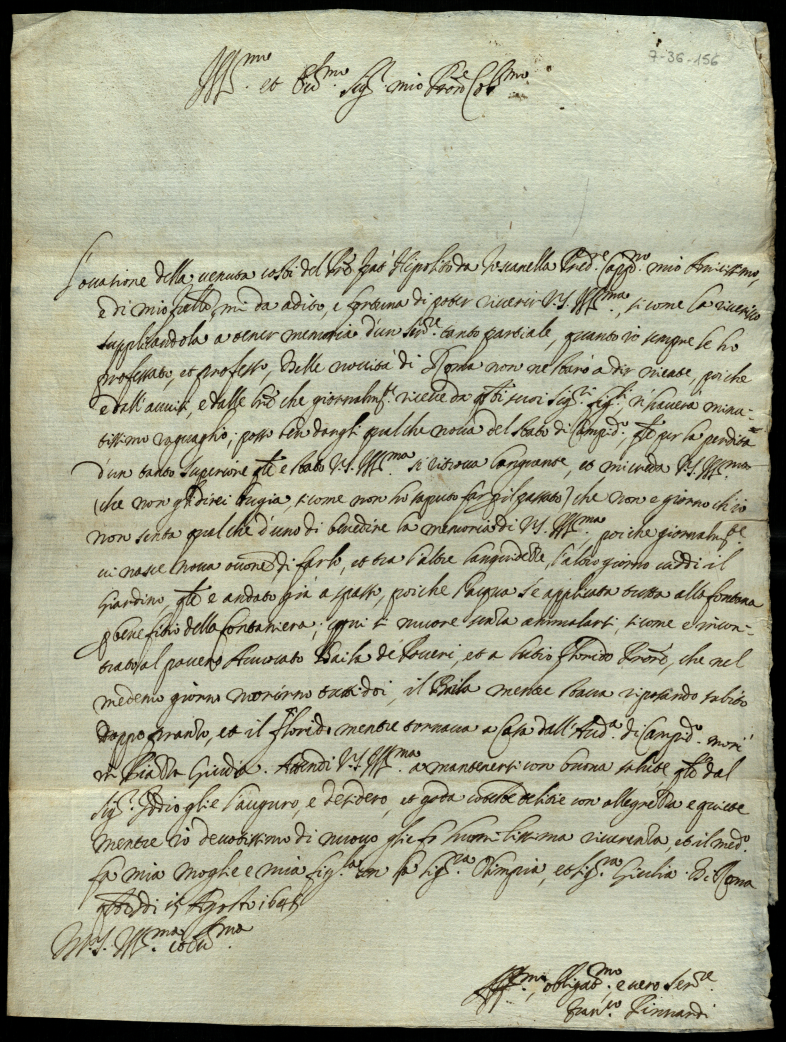 7-36-156
Ill.mo et Ecc.mo Sig.r mio P.rone Col.mo
L'occasione della venuta costì del P.re frat' Hipolito da Toscanella Pred.re Capp.no mio Amicissimo,
e di mio fratello mi da adito, e fortuna di poter riverir V.S. Ill.ma, si come la riverisco
supplicandola a tener memoria d'un Ser.re tanto partiale, quanto io sempre le ho
professato, et professo, delle novità di Roma non ne starò a dir niente, poiche
e dall'avvisi, e dalle l.re che giornalm.te riceve da q.sti suoi Sig.ri figli, n'haverà minu-
tissimo raguaglio; posso ben dargli qualche nova del stato di Campid.o q.le per la perdita
d'un tanto Superiore q.le è stato V.S. Ill.ma si ritrova languente, et mi creda V.S. Ill.ma
(che non gli direi bugia, si come non ho saputo far p il passato) che non è giorno ch'io
non senta qualched'uno di benedire la memoria di V.S. Ill.ma poiche giornalm.te
vi nasce nova occ.ne di farlo, et tra l'altre languidezze, l'altro giorno viddi il
Giardino, q.le è andato già a spasso, poiche l'acqua s'è applicata tutta alla fontana
p benefitio della fontaniera; ogni si muore senza ammalarsi, si come è incon-
trato al povero Avvocato Baila de' Poveri, et a Lutio Florido Proc.re, che nel
medemo giorno morirno tutti doi, il Baila mentre stava riposando subito
doppo pranzo, et il Florido mentre tornava a Casa dall'Aud.a di Campid.o morì
in Piazza Giudia. Attendi V.S. Ill.ma a mantenersi con buona salute, q.le dal
Sig.r Iddio gli è l'auguro, e desidero, et goda coteste delitie con allegrezza e quiete
mentre io devotissimo di nuovo gli fo humilissima riverenza, et il med.o
fa mia moglie e mia fig.la con la Sig.ra Olimpia, et Sig.ra Giulia. Di Roma
q.sto dì 15 Agosto 1645
Di V.S. Ill.ma et Ecc.ma
Aff.mo, obligat.mo, e vero Ser.re
Fran.co Pinnardi